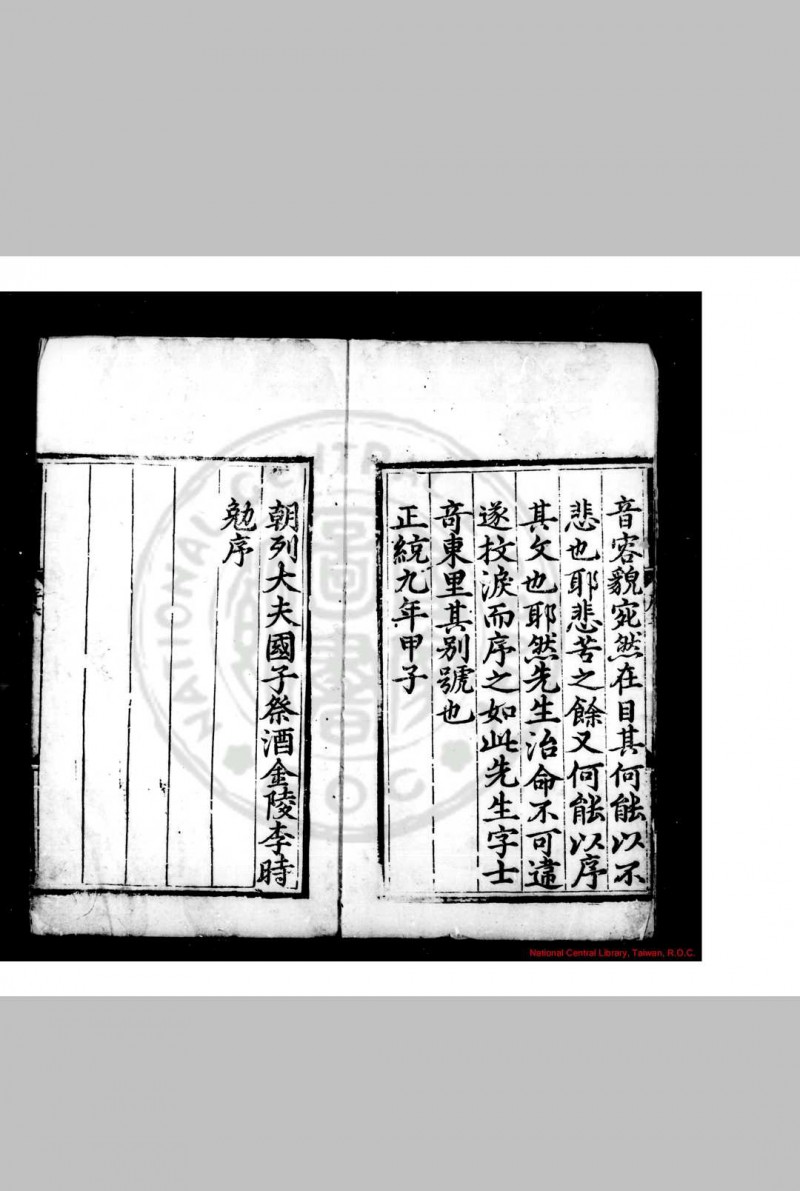 音容貌宛然在目其何能以不
悲也耶悲苦之餘又何能以序
其文也耶然先生治命不可違
遂抆淚而序之如此先生字士
竒東里其别號也
正統九年甲子
朝列大夫國子祭酒金陵李時
勉序
NATIONAL CENTRAL
R.O.C.
National Central Library, Taiwan, R.O.C.